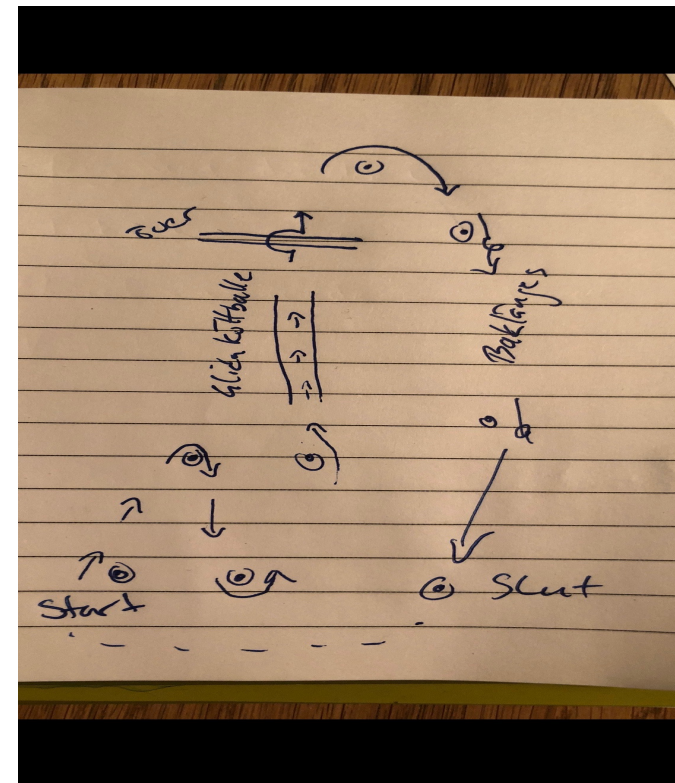 över
Glida köttbulle
Baklänges
Start
Slut